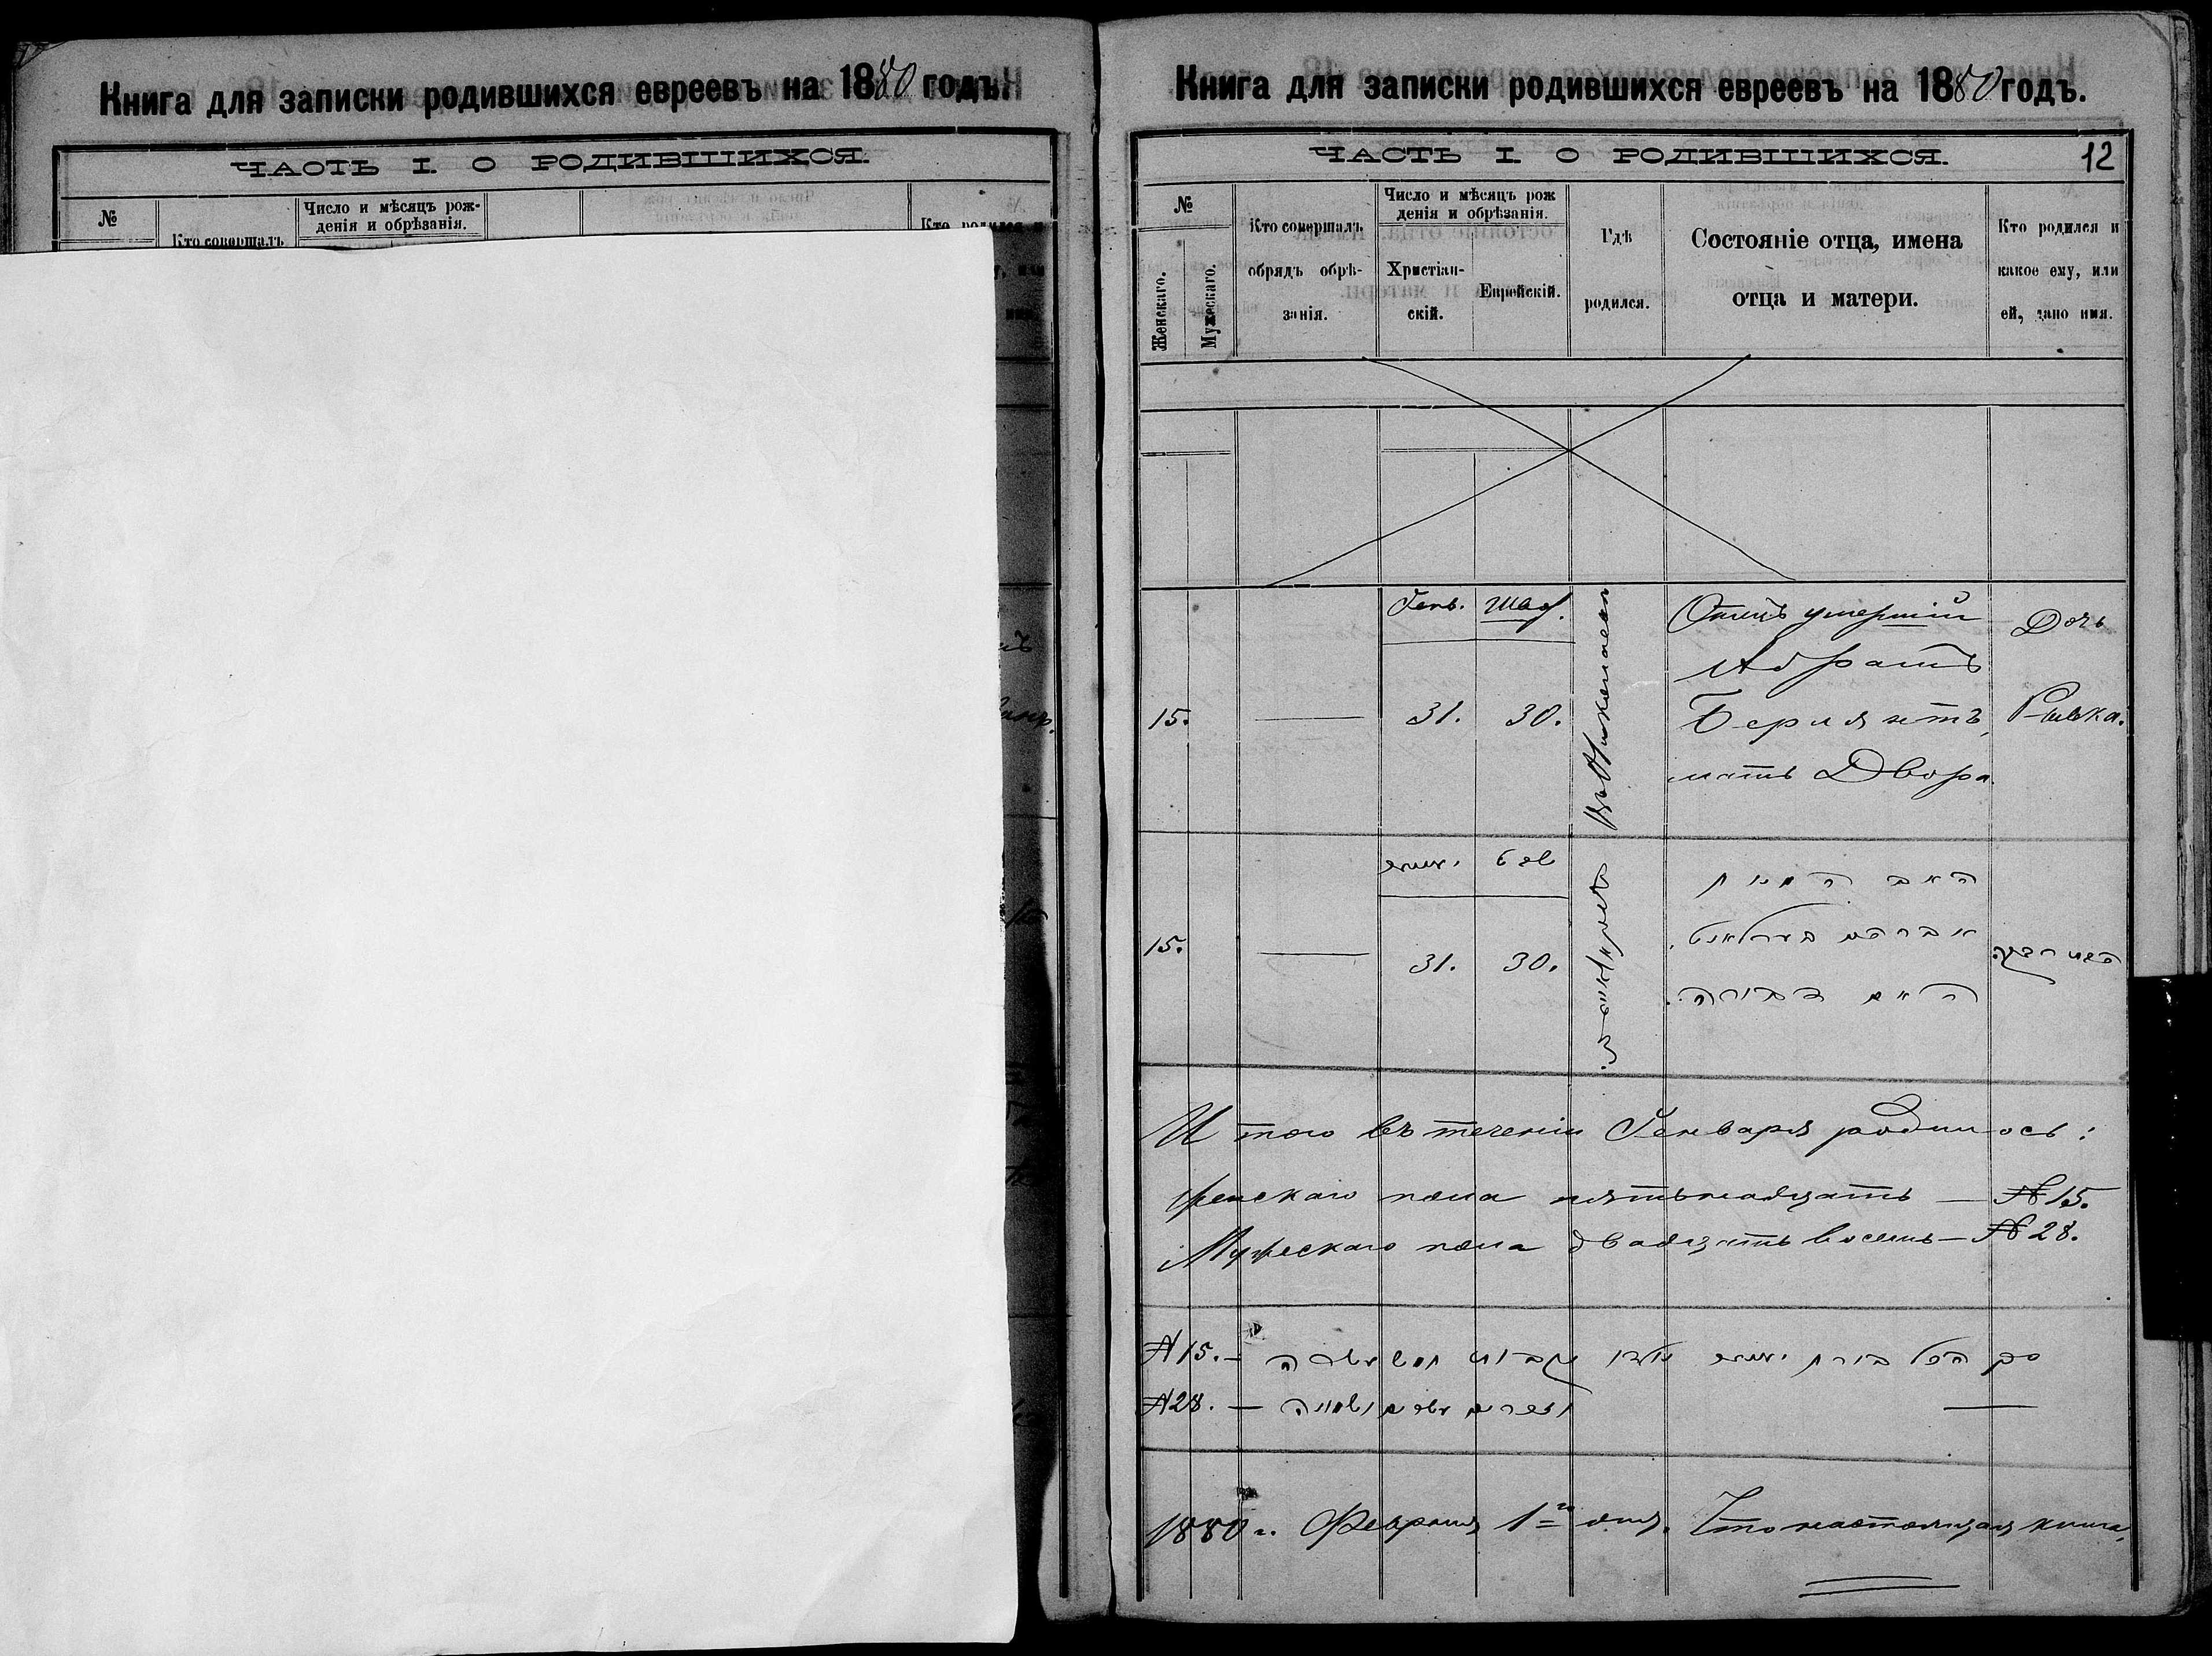 Книга для записки родившихся евреевъ на 1880 годъ.
ЧАСТЬ I. О РОДИВШИХСЯ.
№
Кто совершалъ
Число и мѣсяцъ рож-
денія и обрѣзанія.
Кто родился и
Книга для записки родившихся евреевъ на 1880 годъ.
ЧАСТЬ I. О РОДИВШИХСЯ.
12
№
Женскаго.
Мужескаго.
Кто совершалъ
обрядъ обрѣ-
занія.
Число и мѣсяцъ рож
денія и обрѣзанія.
Христіан-
скій.
Еврейскій.
Гдѣ
родился.
Состояніе отца, имена
отца и матери.
Кто родился и
какое ему, или
ей, дано имя.
15.
Генв.
31.
Шва.
30.
Отецъ умершій
Абрамъ
Берлянтъ,
мать Двора.
Дочь
Ривка.
15.
ינואר
31.
שבט
30.
האב המת
אברהם בערלאנט.
האם דבורה.
Итого въ теченіи Генваря родилось:
женскаго пола пятьнадцать — № 15.
Мужескаго пола двадцать восемь — № 28.
№ 15. —
סך הכל
№ 28. —
זכרים עשרים ושמונה
1880 г. Февраля 1го дня. Что настоящая книга,